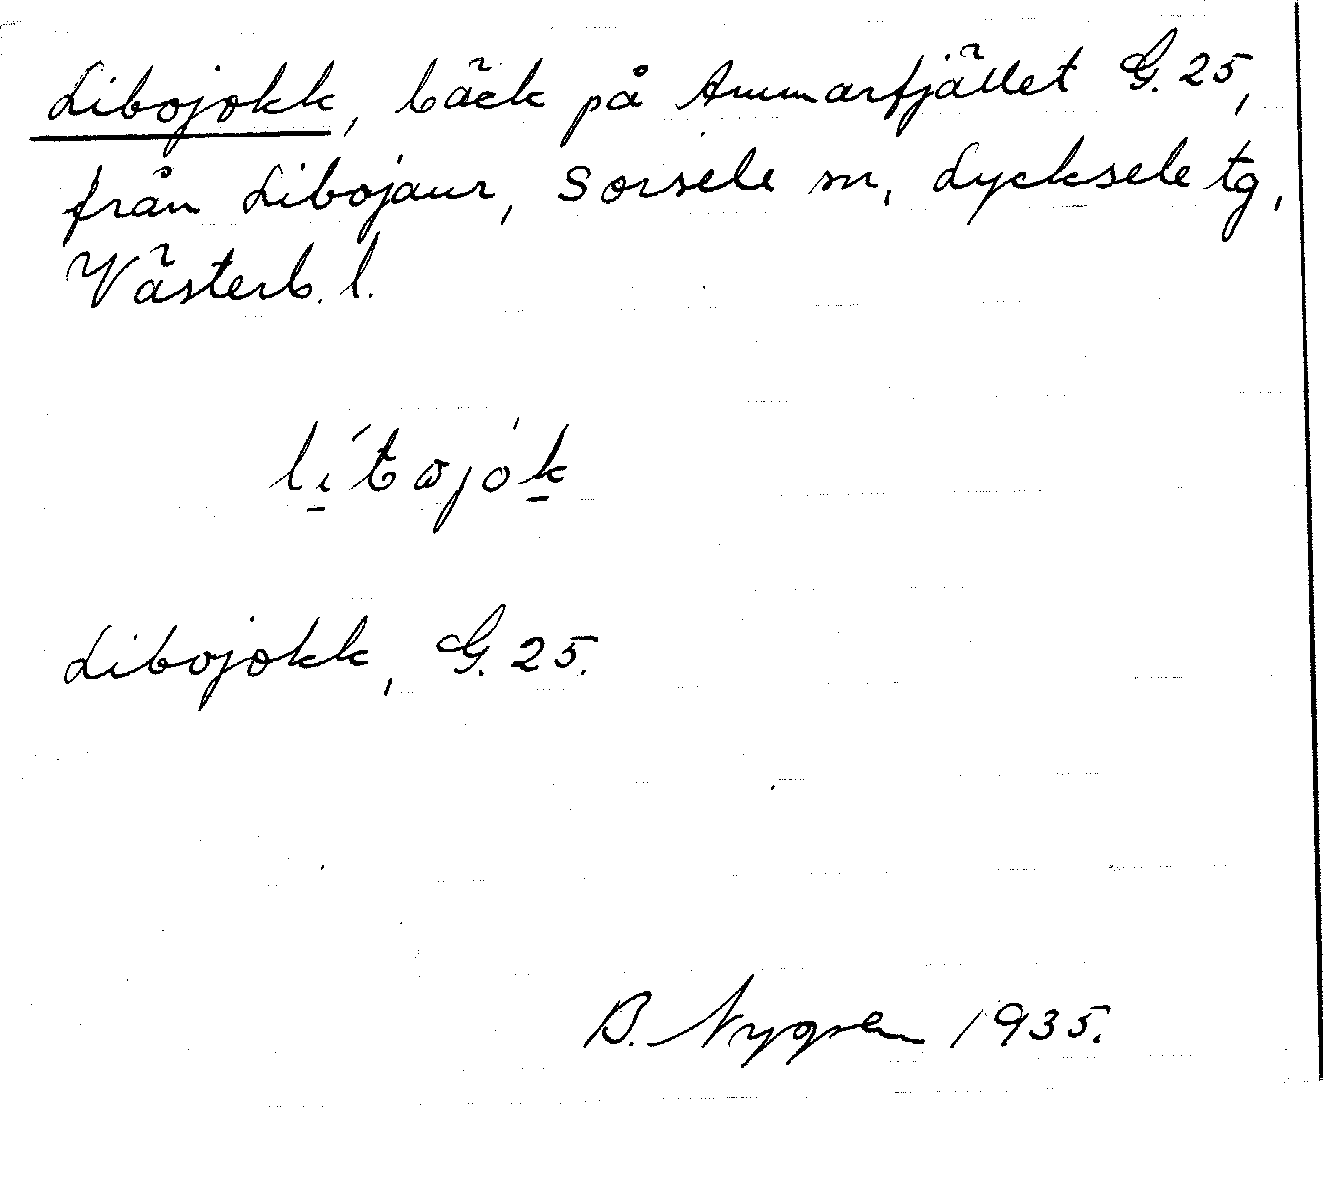 Libojokk, bäck på Ammarfjället G. 25,
från Libojaur, Sorsele sn, Lycksele tg,
Västerb. l.
Libojokk, G. 25.
B. Nygren 1935.